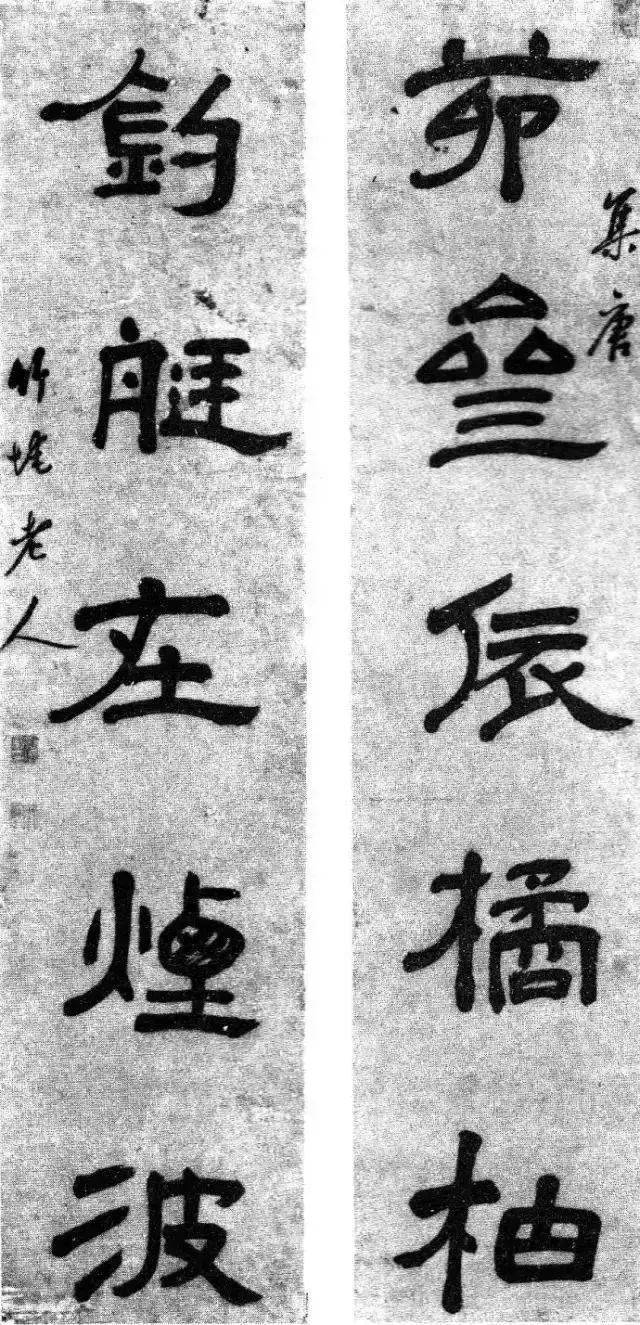 集唐
茆齋依橘柚
釣艇在煙波
竹垞老人